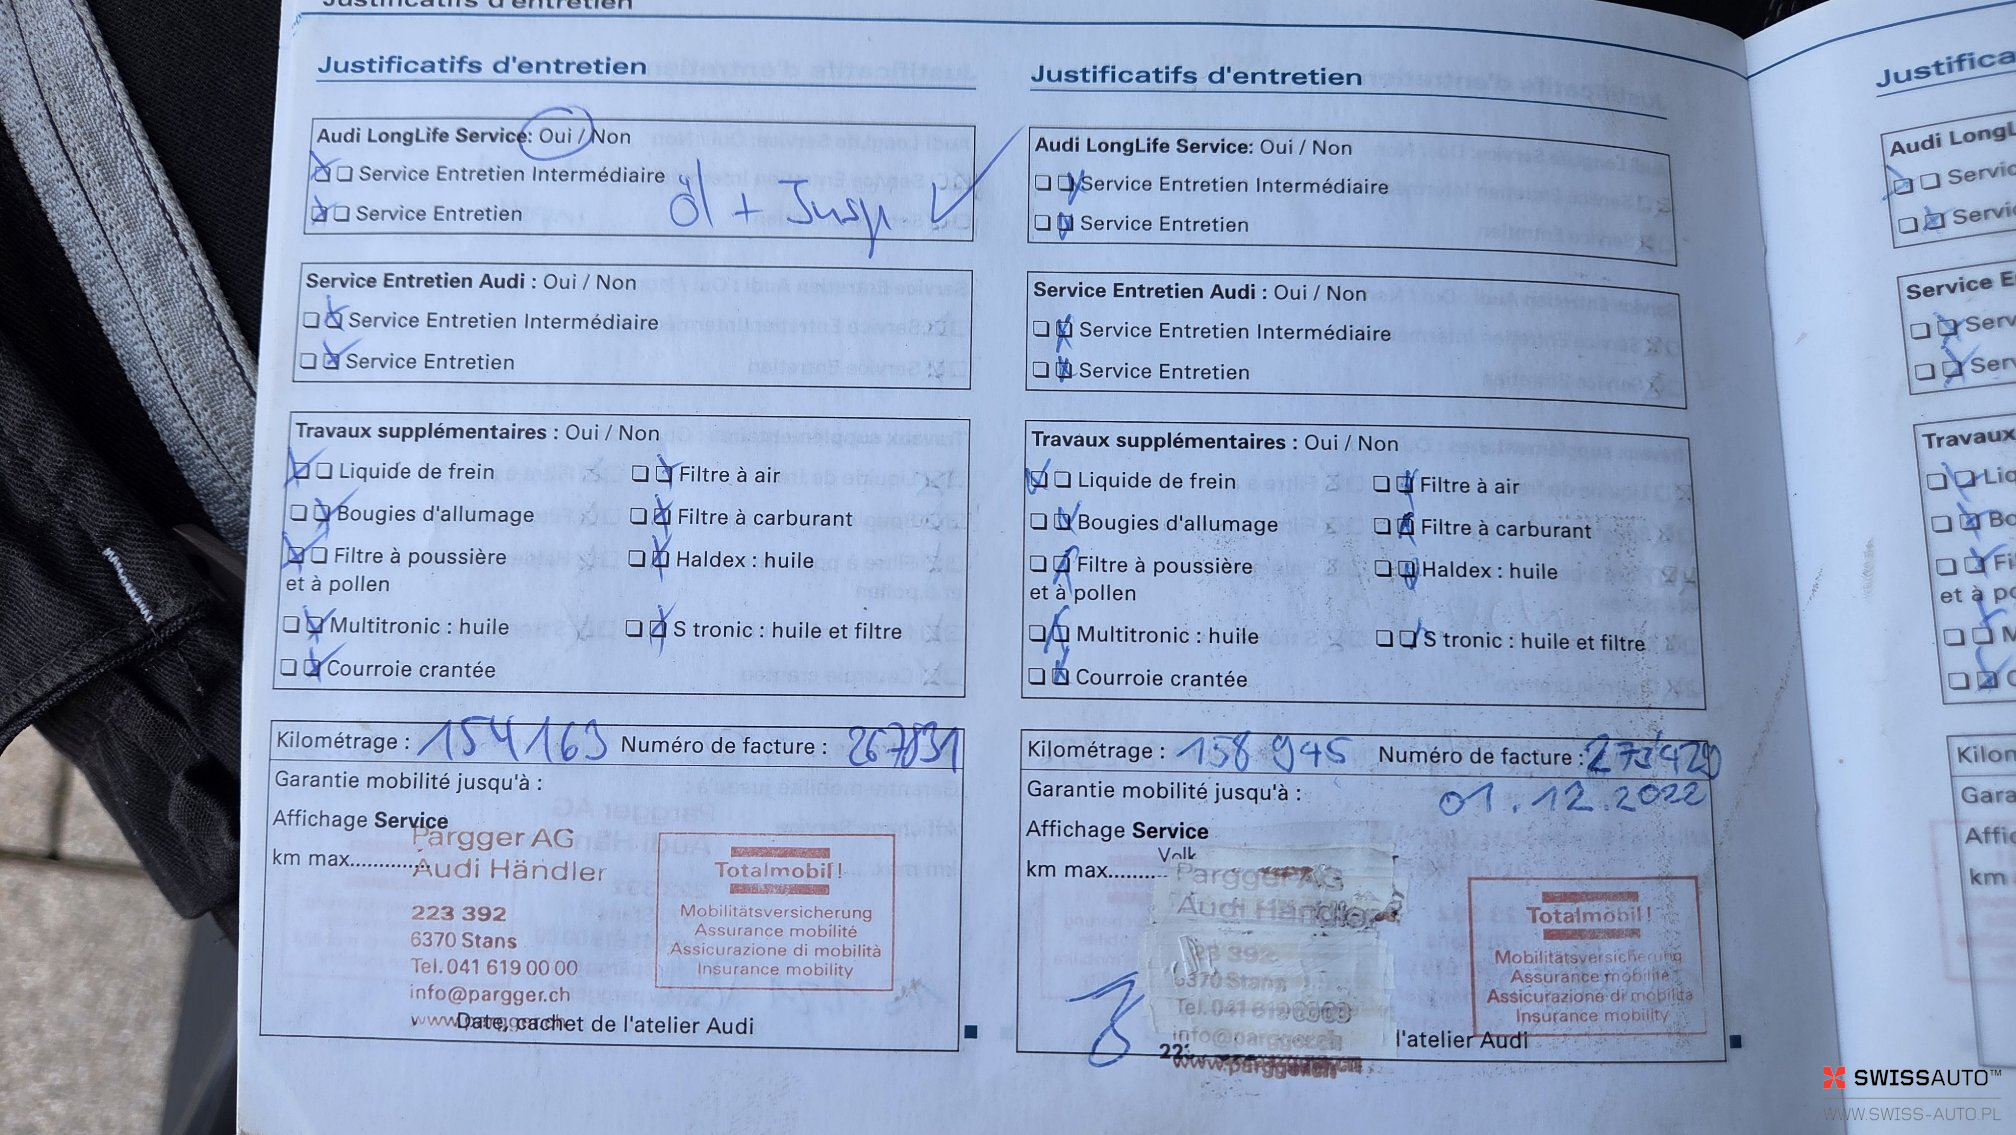 Justificatifs d'entretien
Justificatifs d'entretien
Audi LongLife Service: Oui / Non
Service Entretien Intermédiaire
Service Entretien
öl + Insp ✓
Service Entretien Audi : Oui / Non
Service Entretien Intermédiaire
Service Entretien
Travaux supplémentaires : Oui / Non
Liquide de frein Filtre à air
Bougies d'allumage Filtre à carburant
Filtre à poussière Haldex : huile
et à pollen
Multitronic : huile S tronic : huile et filtre
Courroie crantée
Kilométrage : 154163 Numéro de facture : 267831
Garantie mobilité jusqu'à :
Affichage Service
km max............
Pargger AG
Audi Händler
223 392
6370 Stans
Tel. 041 619 00 00
info@pargger.ch
www.pargger.ch
Date, cachet de l'atelier Audi
Totalmobil!
Mobilitätsversicherung
Assurance mobilité
Assicurazione di mobilità
Insurance mobility
Justificatifs d'entretien
Audi LongLife Service: Oui / Non
Service Entretien Intermédiaire
Service Entretien
Service Entretien Audi : Oui / Non
Service Entretien Intermédiaire
Service Entretien
Travaux supplémentaires : Oui / Non
Liquide de frein Filtre à air
Bougies d'allumage Filtre à carburant
Filtre à poussière Haldex : huile
et à pollen
Multitronic : huile S tronic : huile et filtre
Courroie crantée
Kilométrage : 158945 Numéro de facture : 273420
Garantie mobilité jusqu'à : 01.12.2022
Affichage Service
km max.........
Volk
Pargger AG
Audi Händler
223 392
6370 Stans
info@pargger.ch
www.pargger.ch
l'atelier Audi
Totalmobil!
Mobilitätsversicherung
Assurance mobilité
Assicurazione di mobilità
Insurance mobility
Justifica
Audi LongL
Servic
Servic
Service E
Serv
Serv
Travaux
Liq
Bo
Fi
et à po
M
C
Kilom
Gara
Affic
km
SWISSAUTO™
WWW.SWISS-AUTO.PL